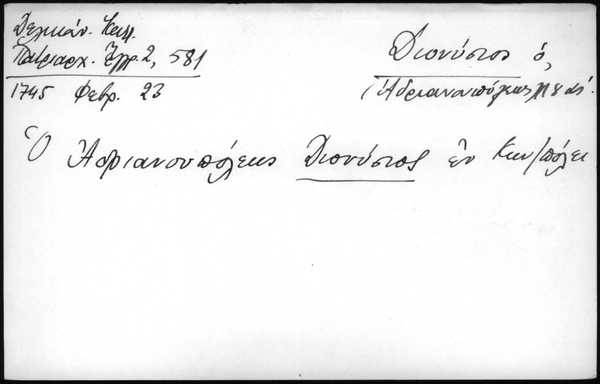 Δελικάν. Καλ.
Πατριαρχ. Ἔγγρ. 2, 581
1745 Φεβρ. 23
Διονύσιος ὁ,
(Ἀδριανουπόλεως
Ὁ Ἀδριανουπόλεως Διονύσιος ἐν Κων/πόλει